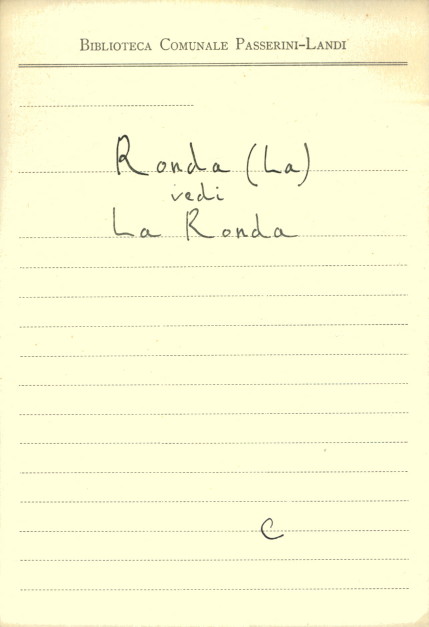 Biblioteca Comunale Passerini-Landi
Ronda (La)
vedi
La Ronda
C